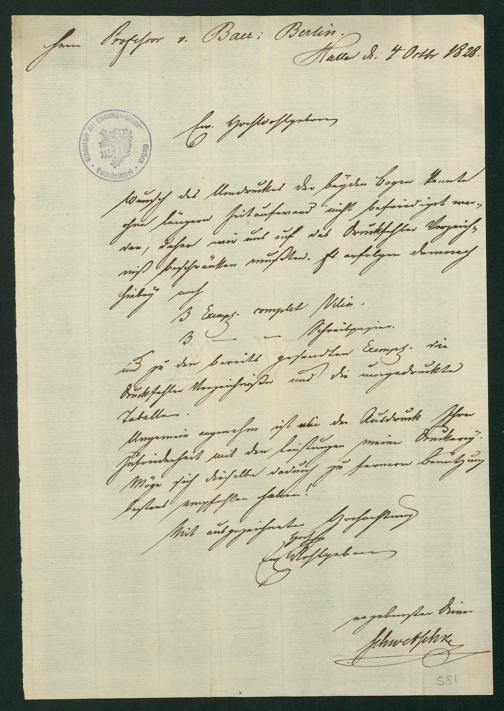 Herrn Professor v. Baer: Berlin.
Halle d. 4 Octbr 1828.
Ew. Hochwohlgeboren
Wunsch des Umdruckes der beyden Bogen konnte
ohne längern Zeitaufwand nicht befriediget wer-
den, daher wir uns auf das Druckfehler Verzeich-
niß beschränken mußten. Es erfolgen demnach
hiebey noch
3 Exempl. complet Velin.
3 — — Schreibpapier.
und zu den bereits gesandten Exempl. die
Druckfehler Verzeichniße und die umgedruckte
Tabelle.
Ungemein angenehm ist der Ausdruck Ihrer
Zufriedenheit mit den Leistungen meiner Druckerey.
Möge sich dieselbe dadurch zu fernerer Benutzung
bestens empfohlen halten!
Mit ausgezeichneter Hochachtung
Hoch
Ew. Wohlgeboren
ergebenster Diener
Schwetschke
581